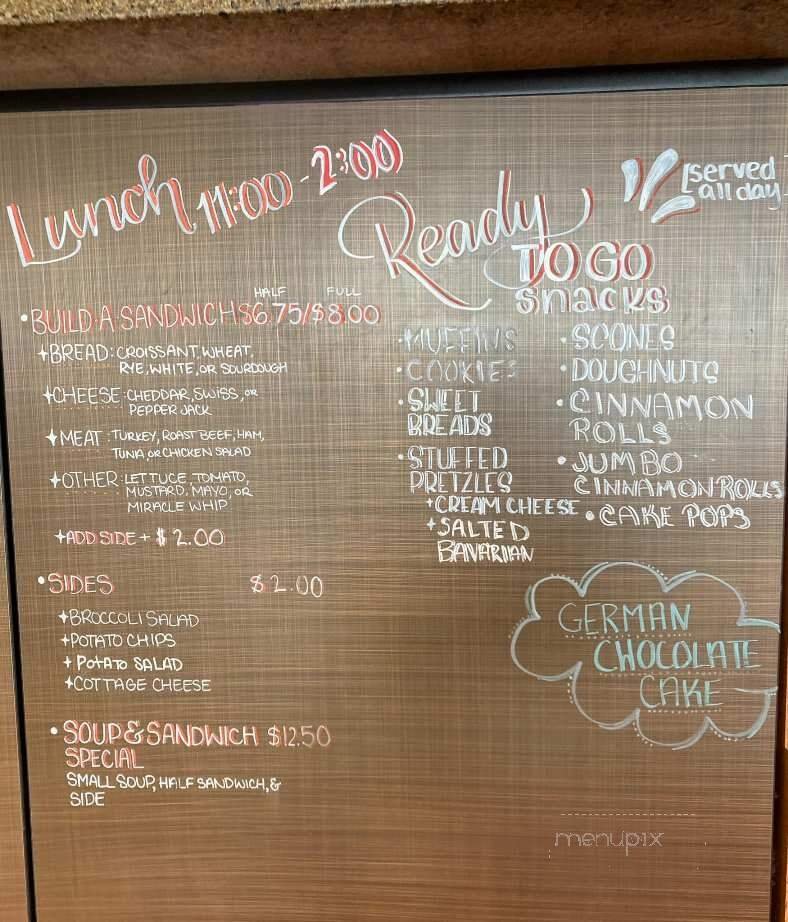 Lunch 11:00 - 2:00
HALF FULL
• BUILD-A-SANDWICH $6.75/$8.00
+BREAD: CROISSANT, WHEAT,
RYE, WHITE, OR SOURDOUGH
+CHEESE: CHEDDAR, SWISS, OR
PEPPER JACK
+MEAT: TURKEY, ROAST BEEF, HAM,
TUNA OR CHICKEN SALAD
+OTHER: LETTUCE, TOMATO,
MUSTARD, MAYO, OR
MIRACLE WHIP
+ADD SIDE + $2.00
• SIDES $2.00
+BROCCOLI SALAD
+POTATO CHIPS
+POTATO SALAD
+COTTAGE CHEESE
• SOUP & SANDWICH $12.50
SPECIAL
SMALL SOUP, HALF SANDWICH, &
SIDE
served
all day
Ready
TO GO
snacks
• MUFFINS
• COOKIES
• SWEET
BREADS
• STUFFED
PRETZLES
+CREAM CHEESE
+SALTED
BAVARIAN
• SCONES
• DOUGHNUTS
• CINNAMON
ROLLS
• JUMBO
CINNAMON ROLLS
• CAKE POPS
GERMAN
CHOCOLATE
CAKE
menupix